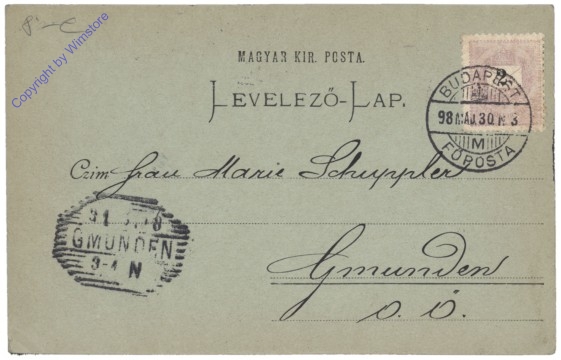 Copyright by Wimstore
MAGYAR KIR. POSTA.
LEVELEZŐ-LAP.
BUDAPEST
98 MÁJ. 30 N 3
M
FŐPOSTA
Czim Frau Marie Schuppler
GMUNDEN
3-4 N
Gmunden
O. Ö.